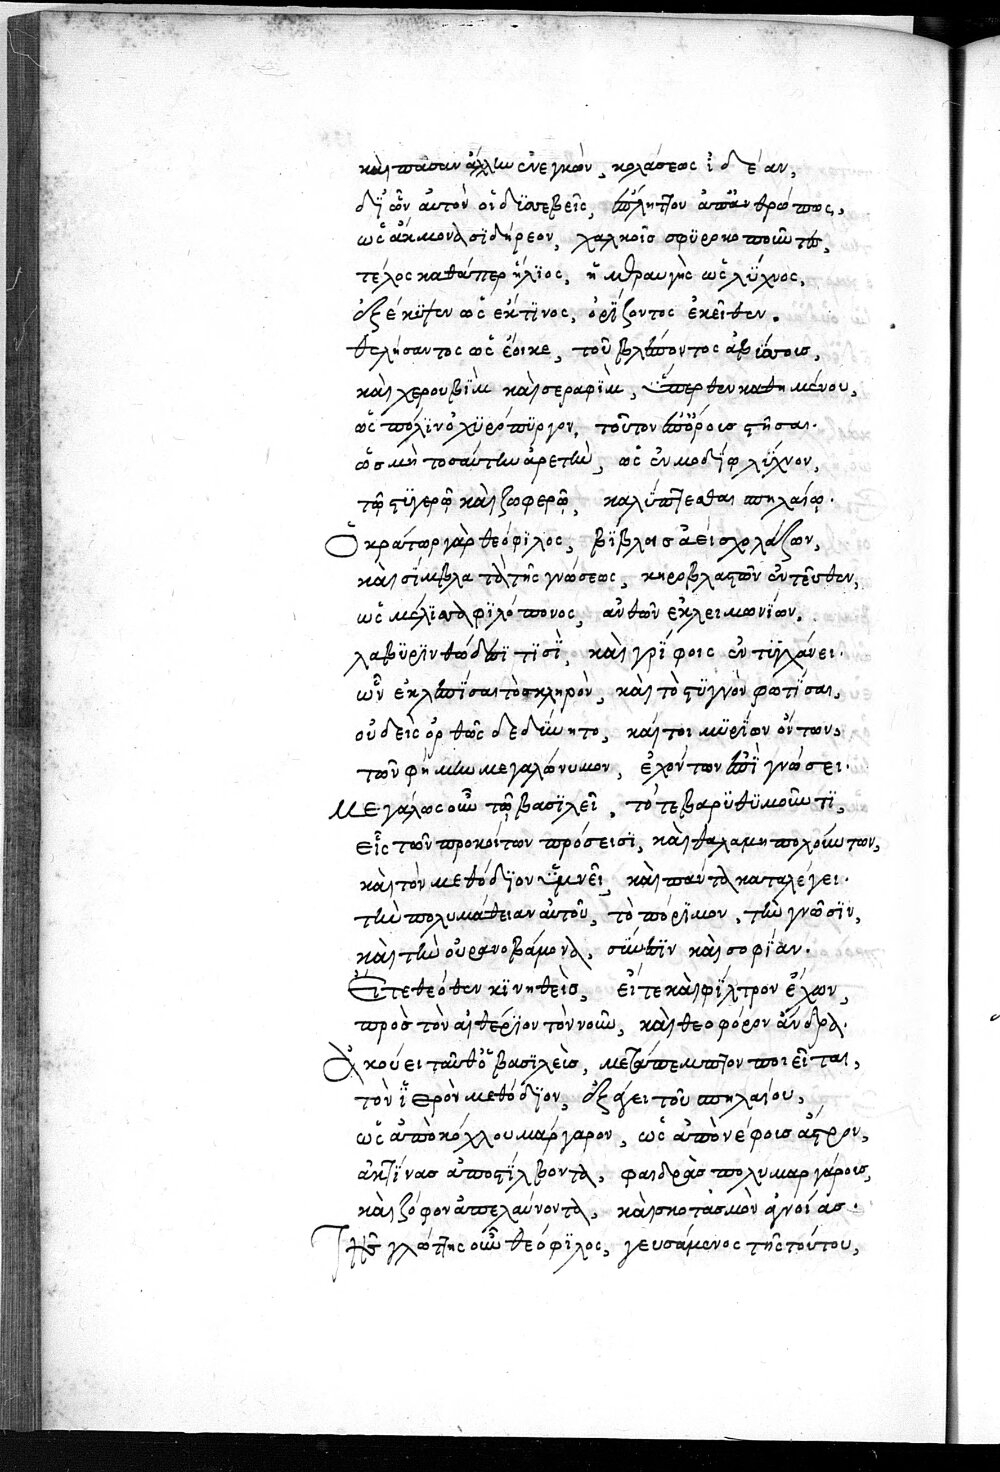 καὶ πᾶσαν ἄλλην ἐνεγκὼν, κολάσεως ἰδέαν,
δι' ὧν αὐτὸν οἱ δυσεβεῖς, ἀπανθρώπως,
ὡς ἄκμονα σιδήρεον, χαλκοῖς σφυροκοποῦντες,
τέλος καθάπερ ἥλιος, ἢ ὡς λύχνος,
ἐξέκυψεν ὡς ἐκτίνος, ὁρίζοντος ἐκεῖθεν.
θελήσαντος ὡς ἔοικε, τοῦ βλέποντος ἀβύσσοις,
καὶ χερουβὶμ καὶ σεραφὶμ, ὕπερθεν καθημένου,
ὡς πόλιν ὀχυρόπυργον, τοῦτον ἐπ' ὄροις στῆσαι.
ὡς μὴ τοσαύτην ἀρετὴν, ὡς ἐν μοδίῳ λύχνον,
τῷ στυγερῷ καὶ ζοφερῷ, καλύπτεσθαι σπηλαίῳ.
Ὁ κράτωρ γὰρ θεόφιλος, βίβλοις ἀεὶ σχολάζων,
καὶ σίμβλα τὰ τῆς γνώσεως, κηροβλαστῶν ἐντεῦθεν,
ὡς μέλισσα φιλόπονος, αὐτῶν ἐκ λειμώνων.
λαβυρινθώδεσί τισι, καὶ γρίφοις ἐντυγχάνει.
ὧν ἐκλεπῖσαι τὸ σκληρὸν, καὶ τὸ στυγνὸν φωτίσαι,
οὐδεὶς ὀρθῶς δεδύνητο, καίτοι μυρίων ὄντων,
τῶν φήμην μεγαλώνυμον, ἐχόντων ἐπὶ γνώσει.
Μεγάλως οὖν τῷ βασιλεῖ, τότε βαρυθυμοῦντι,
εἷς τῶν προκοίτων πρόσεισι, καὶ θαλαμηπολούντων,
καὶ τὸν μεθόδιον ὑμνεῖ, καὶ πάντα καταλέγει.
τὴν πολυμάθειαν αὐτοῦ, τὸ πόριμον, τὴν γνῶσιν,
καὶ τὴν οὐρανοβάμονα, σύνεσιν καὶ σοφίαν.
Εἴτε θεόθεν κινηθεὶς, εἴτε καὶ φίλτρον ἔχων,
πρὸς τὸν αἰθέριον τὸν νοῦν, καὶ θεοφόρον ἄνδρα.
Ἀκούει ταῦθ' ὁ βασιλεὺς, μετάπεμπτον ποιεῖται,
τὸν ἱερὸν μεθόδιον, ἐξάγει τοῦ σπηλαίου,
ὡς ἀπὸ κόχλου μάργαρον, ὡς ἀπὸ νέφους ἄστρον,
ἀκτῖνας ἀποστίλβοντα, φαιδρὰς πολυμαργάροις,
καὶ ζόφον ἀπελαύνοντα, καὶ σκοτασμὸν ἀγνοίας.
Τῆς γλώττης οὖν θεόφιλος, γευσάμενος τῆς τούτου,